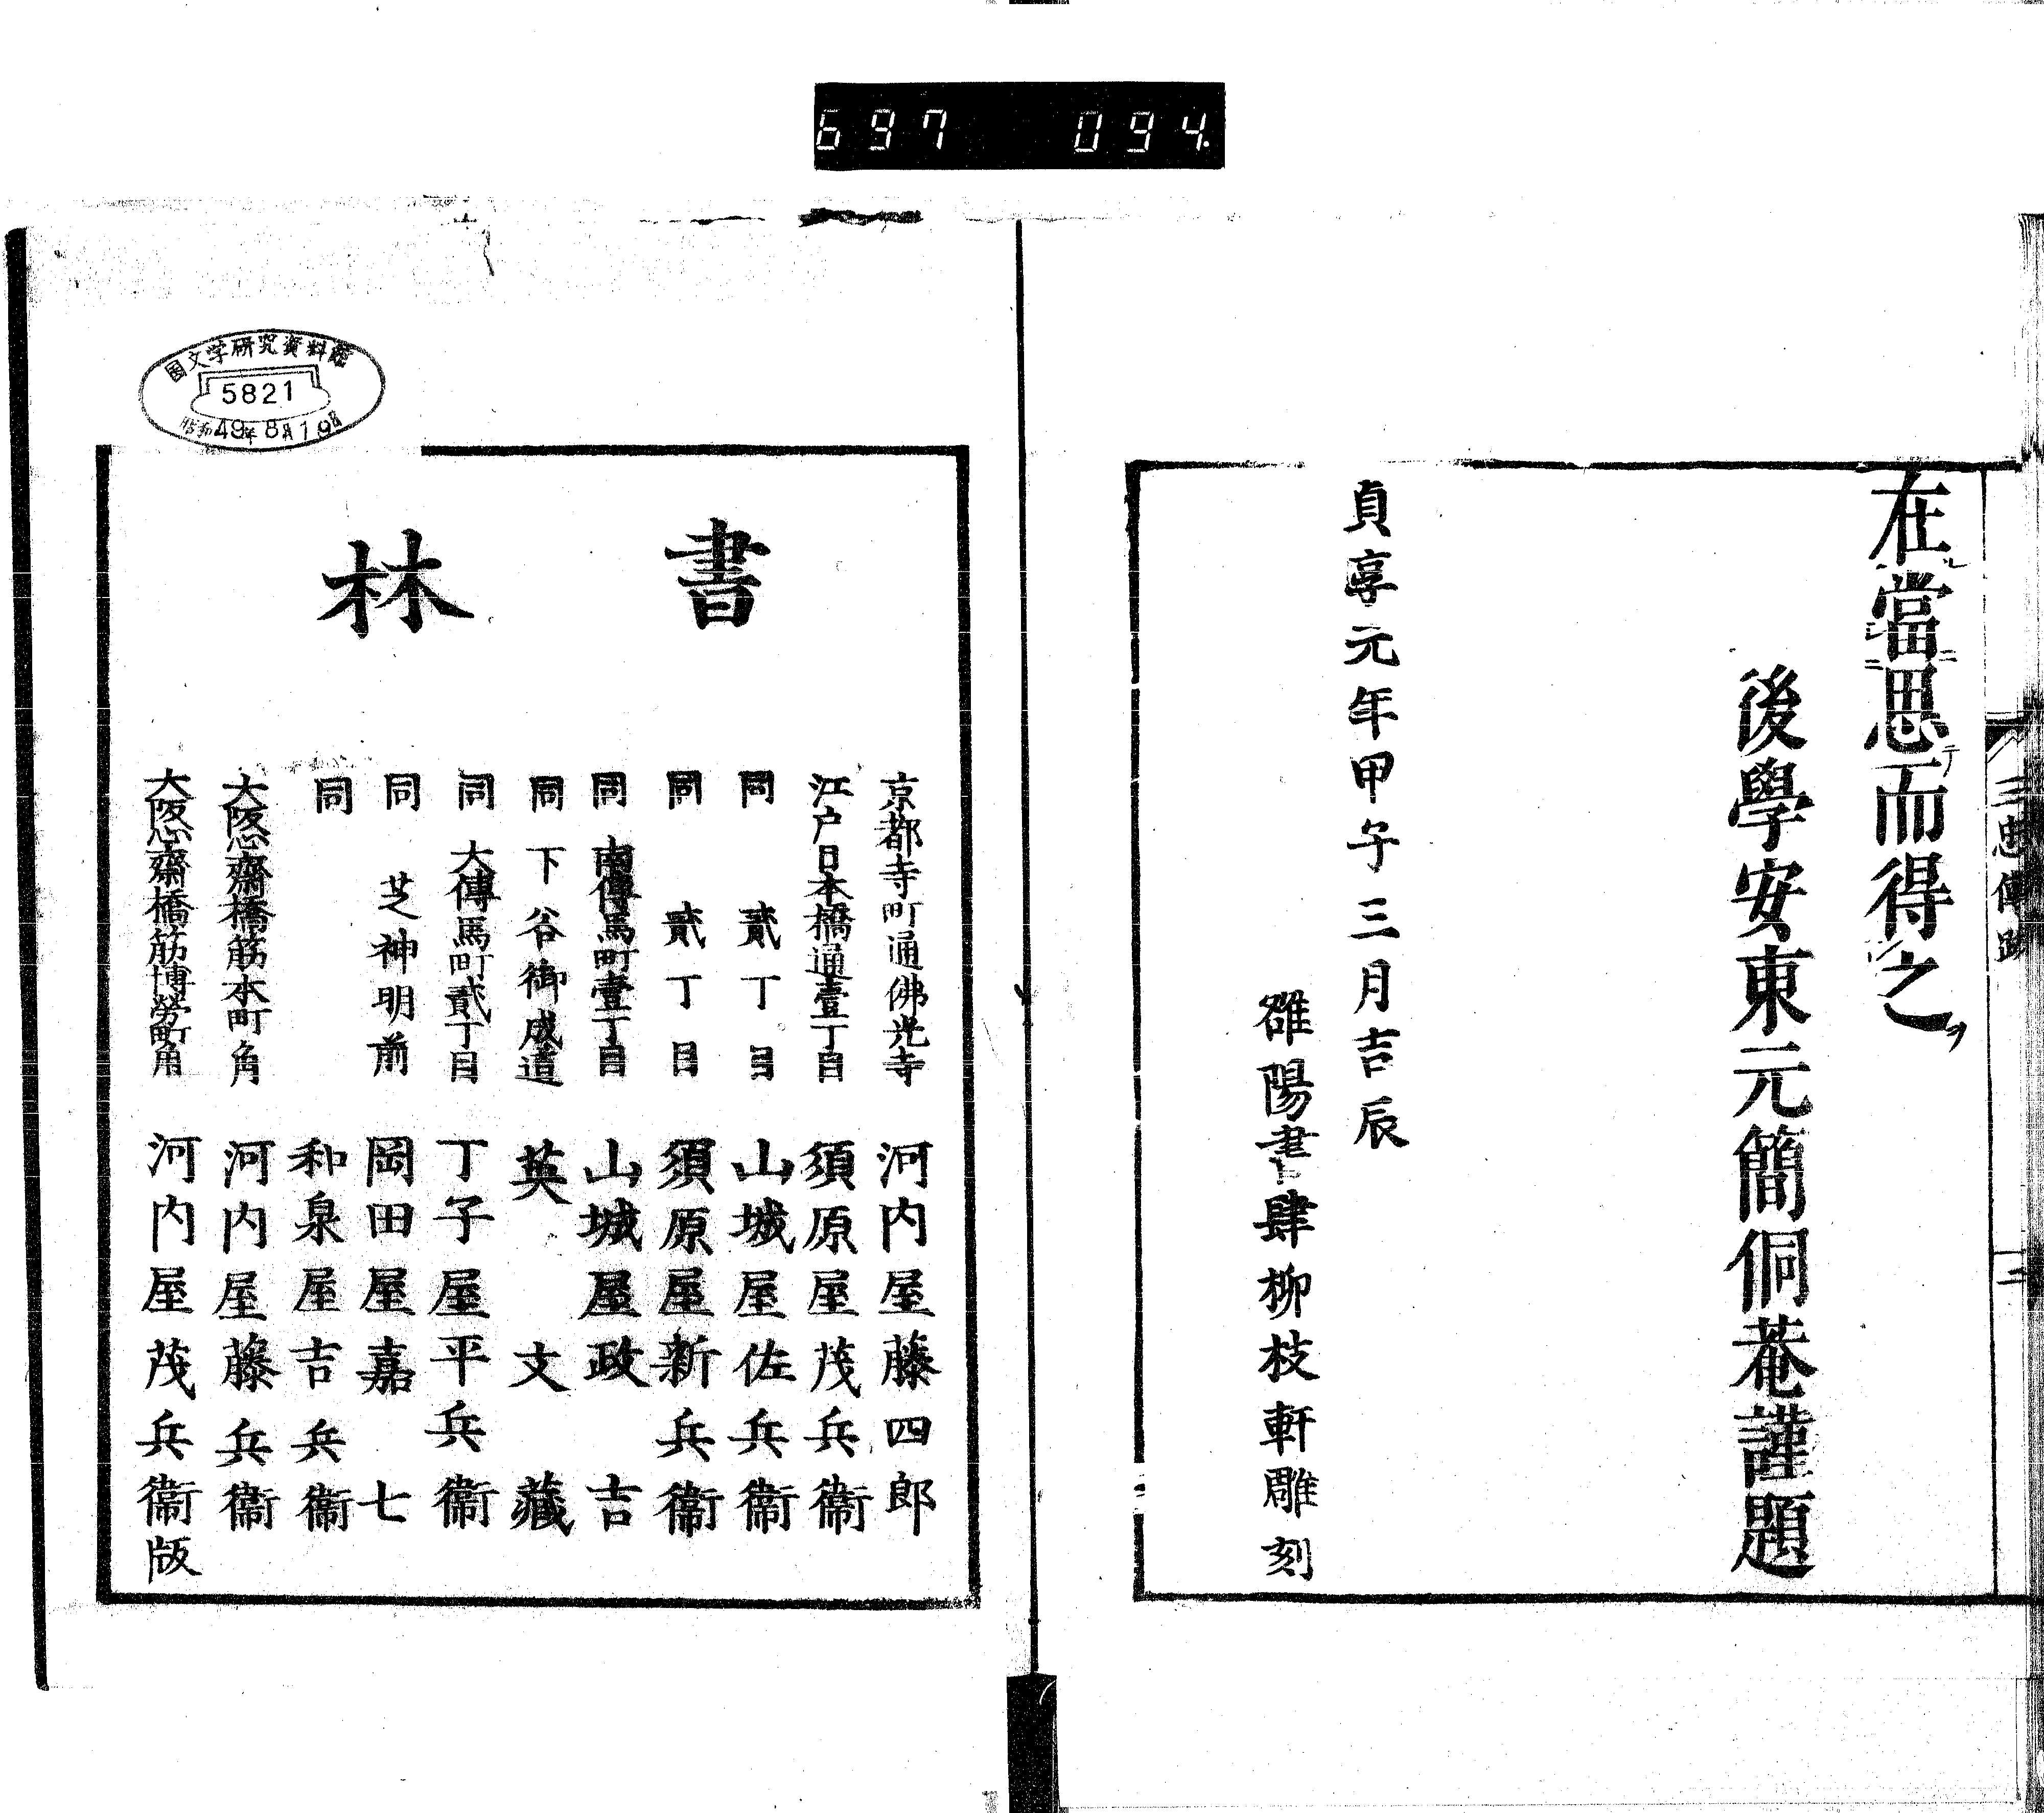 697 094.
在當思而得之
後學安東元簡侗菴謹題
貞享元年甲子三月吉辰
雒陽書肆柳枝軒雕刻
三忠傳跋
二
国文学研究資料館
5821
昭和49年8月19日
書林
京都寺町通佛光寺 河内屋藤四郎
江戸日本橋通壹丁目 須原屋茂兵衞
同 貳丁目 山城屋佐兵衞
同 貳丁目 須原屋新兵衞
同 南傳馬町壹丁目 山城屋政吉
同 下谷御成道 英文藏
同 大傳馬町貳丁目 丁子屋平兵衞
同 芝神明前 岡田屋嘉七
同 和泉屋吉兵衞
大阪心齋橋筋本町角 河内屋藤兵衞
大阪心齋橋筋博勞町角 河内屋茂兵衞版